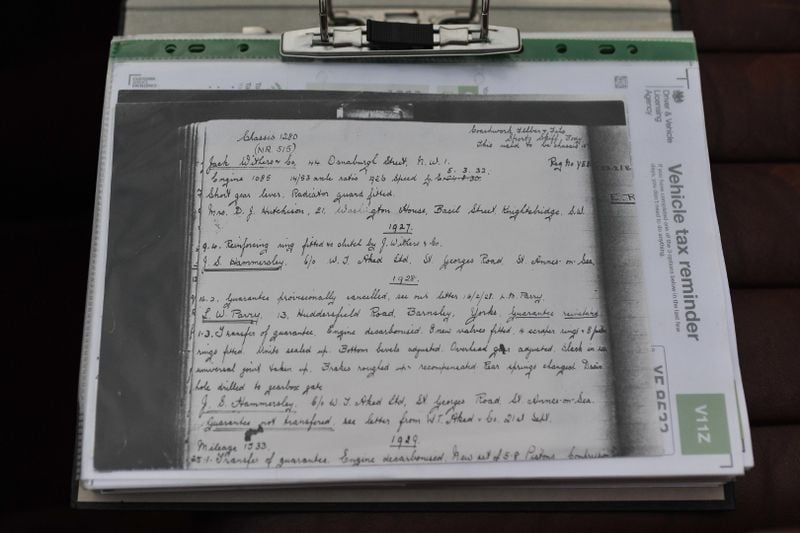 Chassis 1280
(NR. 515)
This used to be chassis
Jack Withers & Co, 44 Osnaburgh Street, N.W.1.
Reg No YE
Engine 1085 14/53 axle ratio
5.3.33.
Short gear lever, Radiator guard fitted.
Mrs. D. J. Hutchison, 21, Washington House, Basil Street, Knightsbridge, S.W.
1927.
Reinforcing ring fitted to clutch by J. Withers & Co.
J. S. Hammersley, c/o W. T. Aked Ltd, St Georges Road, St Annes-on-Sea.
1928.
Guarantee provisionally cancelled, see our letter 16/2/28. Parry
L. W. Parry, 13, Huddersfield Road, Barnsley, Yorks, Guarantee
1.3. Transfer of guarantee. Engine decarbonised. 2 new valves fitted, 4 scraper rings & 8
rings fitted. Units sealed up. Bottom bevels adjusted. Overhead adjusted. Slack in
universal joint taken up. Brakes roughed up & recompensated. Rear springs changed. Drain
hole drilled to gearbox gate
J. S. Hammersley, c/o W. T. Aked Ltd, St Georges Road, St Annes-on-Sea.
Guarantee not transferred, see letter from W.T. Aked & Co. 21st Sept.
Mileage
1929
25.1. Transfer of guarantee. Engine decarbonised. New set of 5.8 Pistons
Driver & Vehicle
Licensing
Agency
Vehicle tax reminder
If you have completed one of the 3 options below in the last few
days, you don't need to do anything.
V11Z